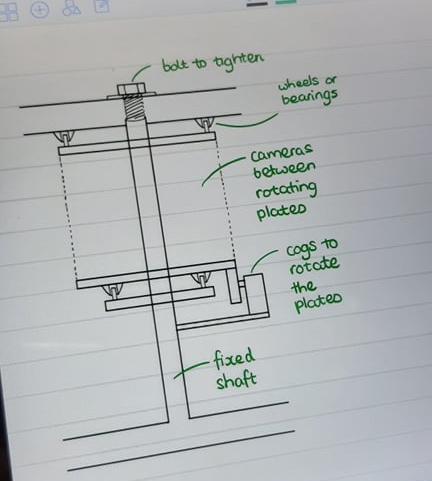 bolt to tighten
wheels or
bearings
cameras
between
rotating
plates
cogs to
rotate
the
plates
fixed
shaft